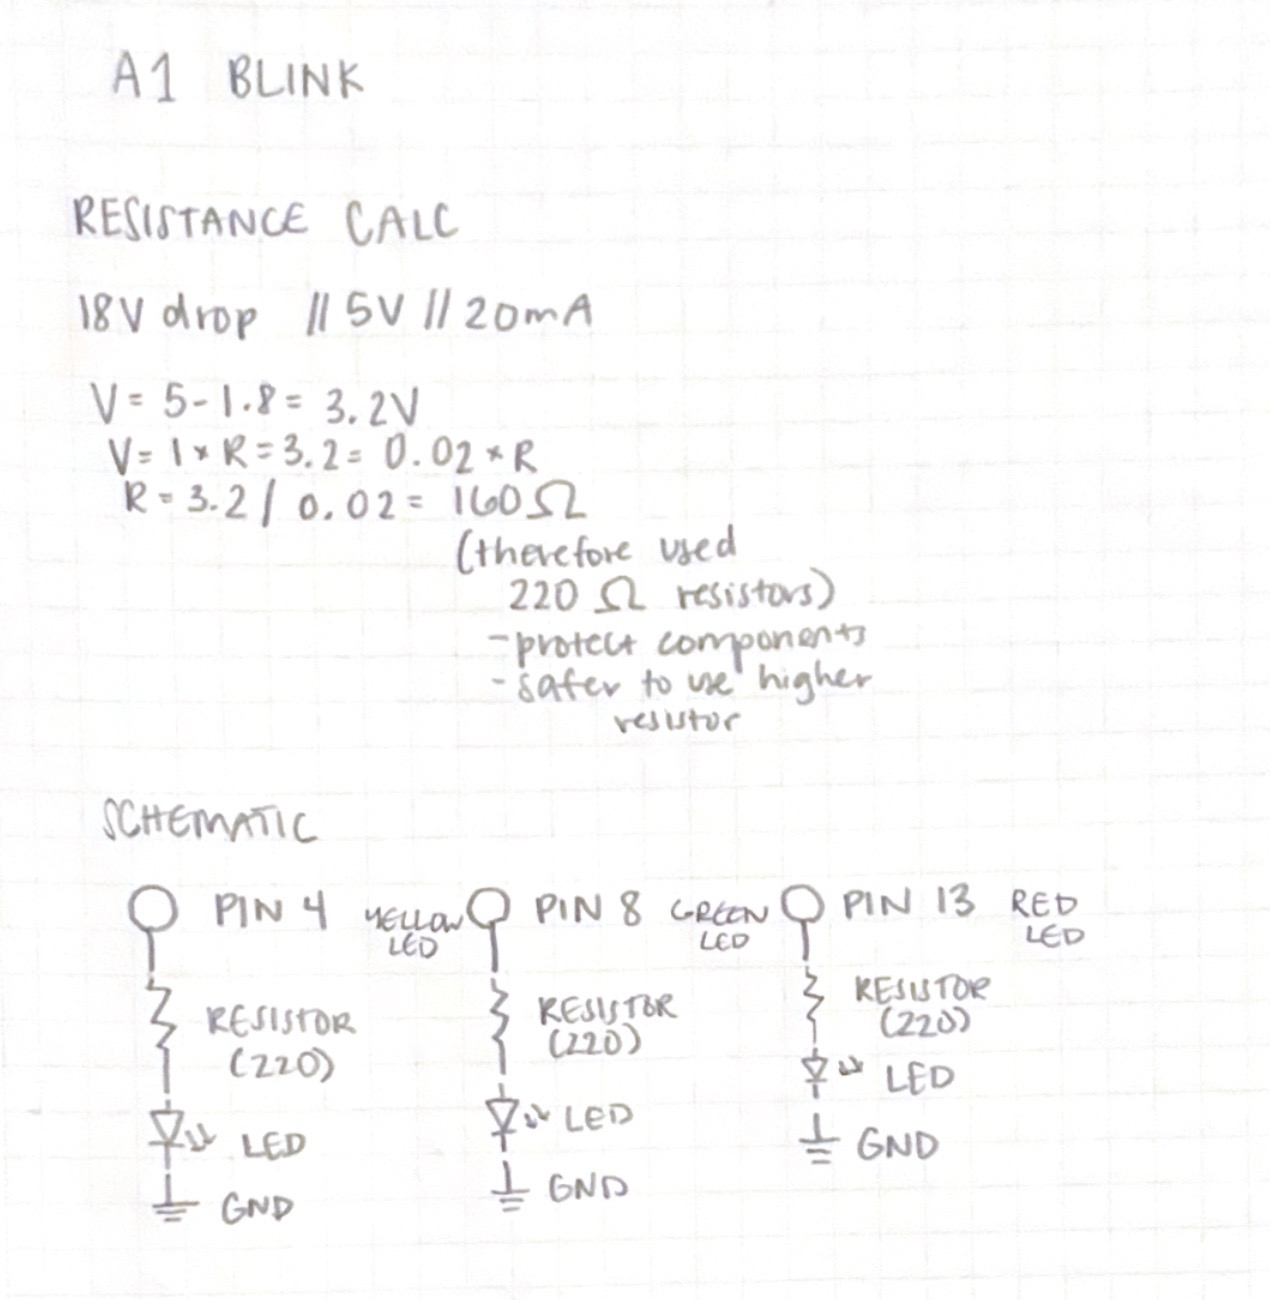 A1 BLINK
RESISTANCE CALC
18V drop // 5V // 20mA
V = 5-1.8 = 3.2V
V = 1 × R = 3.2 = 0.02 × R
R = 3.2 / 0.02 = 160Ω
(therefore used
220 Ω resistors)
- protect components
- safer to use higher
resistor
SCHEMATIC
PIN 4 YELLOW LED
RESISTOR
(220)
LED
GND
PIN 8 GREEN LED
RESISTOR
(220)
LED
GND
PIN 13 RED LED
RESISTOR
(220)
LED
GND